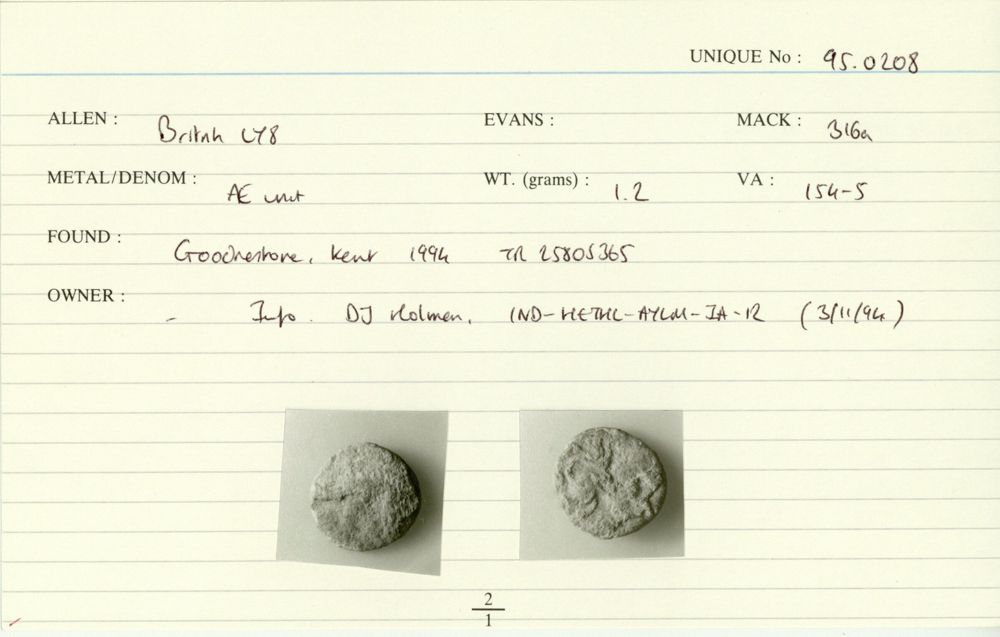 UNIQUE No : 95.0208
ALLEN : British LY8 EVANS : MACK : 316a
METAL/DENOM : AE unit WT. (grams) : 1.2 VA : 154-5
FOUND : Goodnestone, Kent 1994 TR 25805365
OWNER : - Info. DJ Holman, IND- -IA-12 (3/11/94)
2
1